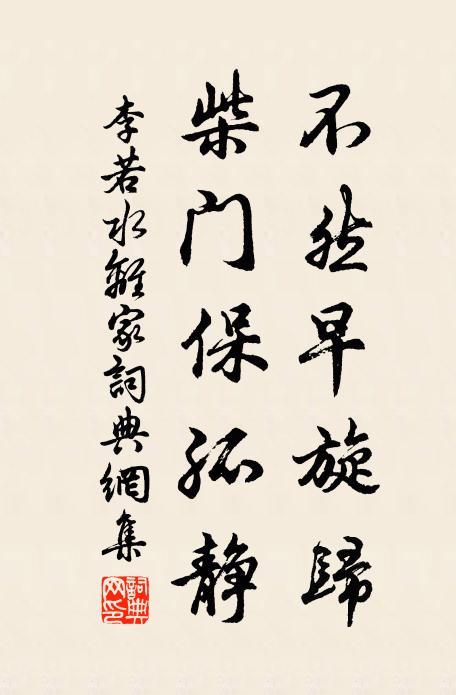 不然早旋歸
柴门保孤静
李若水離家詞典網集
詞典网印